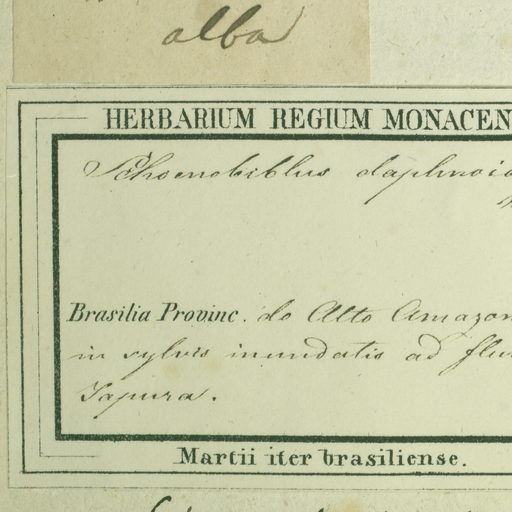 alba
HERBARIUM REGIUM MONACEN
Schoenobiblus daphnoid
Brasilia Provinc. do Alto Amazon
in sylvis inundatis ad flu
Japura.
Martii iter brasiliense.